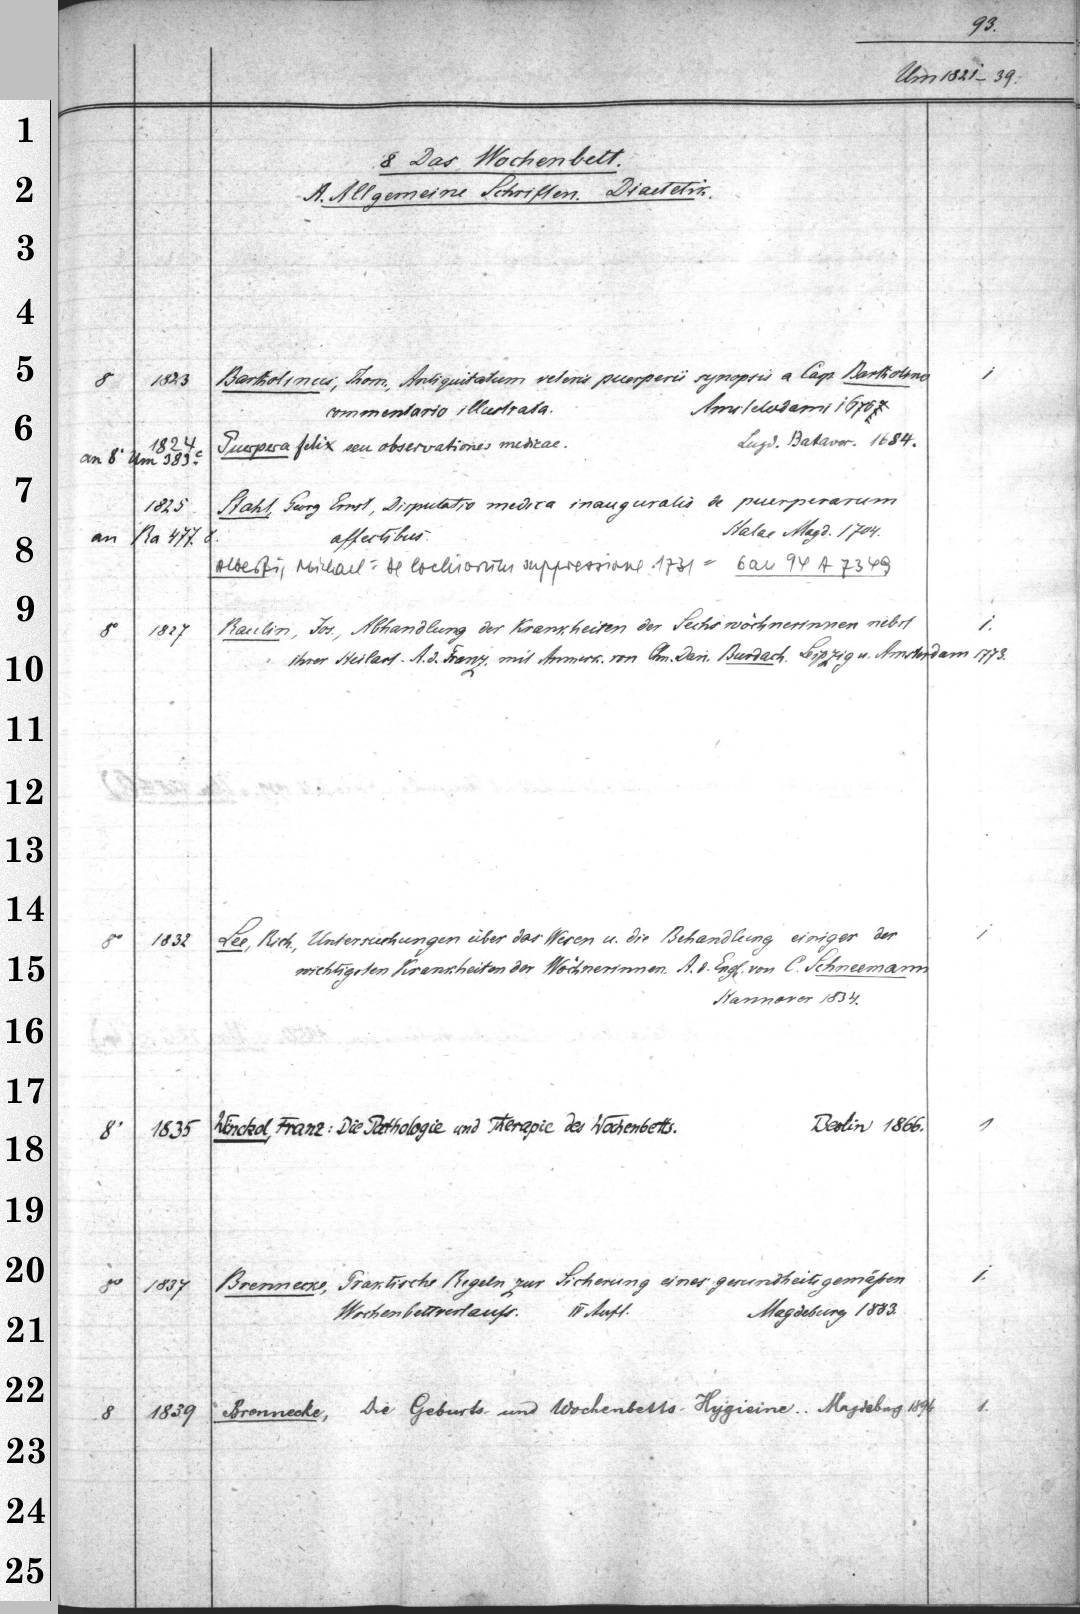 93.
Um 1821-39.
1
8 Das Wochenbett.
2
A. Allgemeine Schriften. Diaetetik.
3
4
5
8 1823 Bartholinus, Thom., Antiquitatum veteris puerperii synopsis a Casp. Bartholino 1
commentario illustrata. Amstelodami 1676
6
1824 Puerpera felix seu observationes medicae. Lugd. Batavor. 1684.
an 8° Um 383c
7
1825 Stahl, Georg Ernst, Disputatio medica inauguralis de puerperarum
8
an Ra 477. 8. affectibus. Halae Magd. 1704.
Alberti, Michael: de lochiorum suppressione 1731 = 6 an 94 A 7349
9
8° 1827 Raulin, Jos., Abhandlung der Krankheiten der Sechswöchnerinnen nebst 1.
10
ihrer Heilart. A. d. Franz. mit Anmerk. von Chn. Dan. Burdach. Leipzig u. Amsterdam 1773.
11
12
13
14
8° 1832 Lee, Rich., Untersuchungen über das Wesen u. die Behandlung einiger der 1
15
wichtigsten Krankheiten der Wöchnerinnen. A. d. Engl. von C. Schneemann
Hannover 1834.
16
17
8° 1835 Winckel, Franz: Die Pathologie und Therapie des Wochenbetts. Berlin 1866. 1
18
19
20
8° 1837 Brennecke, Praktische Regeln zur Sicherung eines gesundheitsgemäßen 1.
21
Wochenbettverlaufs. III Aufl. Magdeburg 1883.
22
8 1839 Brennecke, Die Geburts- und Wochenbetts-Hygieine.. Magdeburg 1896 1.
23
24
25